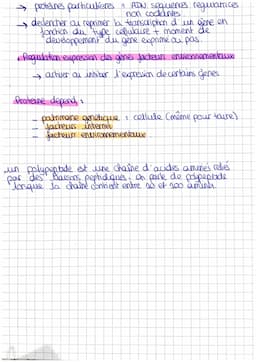 → protéines particulières : ADN séquences régulatrices
non codantes
→ déclencher ou réprimer la transcription d'un gène en
fonction du type cellulaire + moment de
développement du gène exprimé ou pas.
• Régulation expression des gènes facteurs environnementaux
→ activer ou inhiber l'expression de certains gènes
Protéine dépend :
- patrimoine génétique : cellule (même pour toute)
- facteurs internes
- facteurs environnementaux
un polypeptide est une chaîne d'acides aminés reliés
par des liaisons peptidiques. On parle de polypeptide
lorsque la chaîne contient entre 20 et 200 aminés.